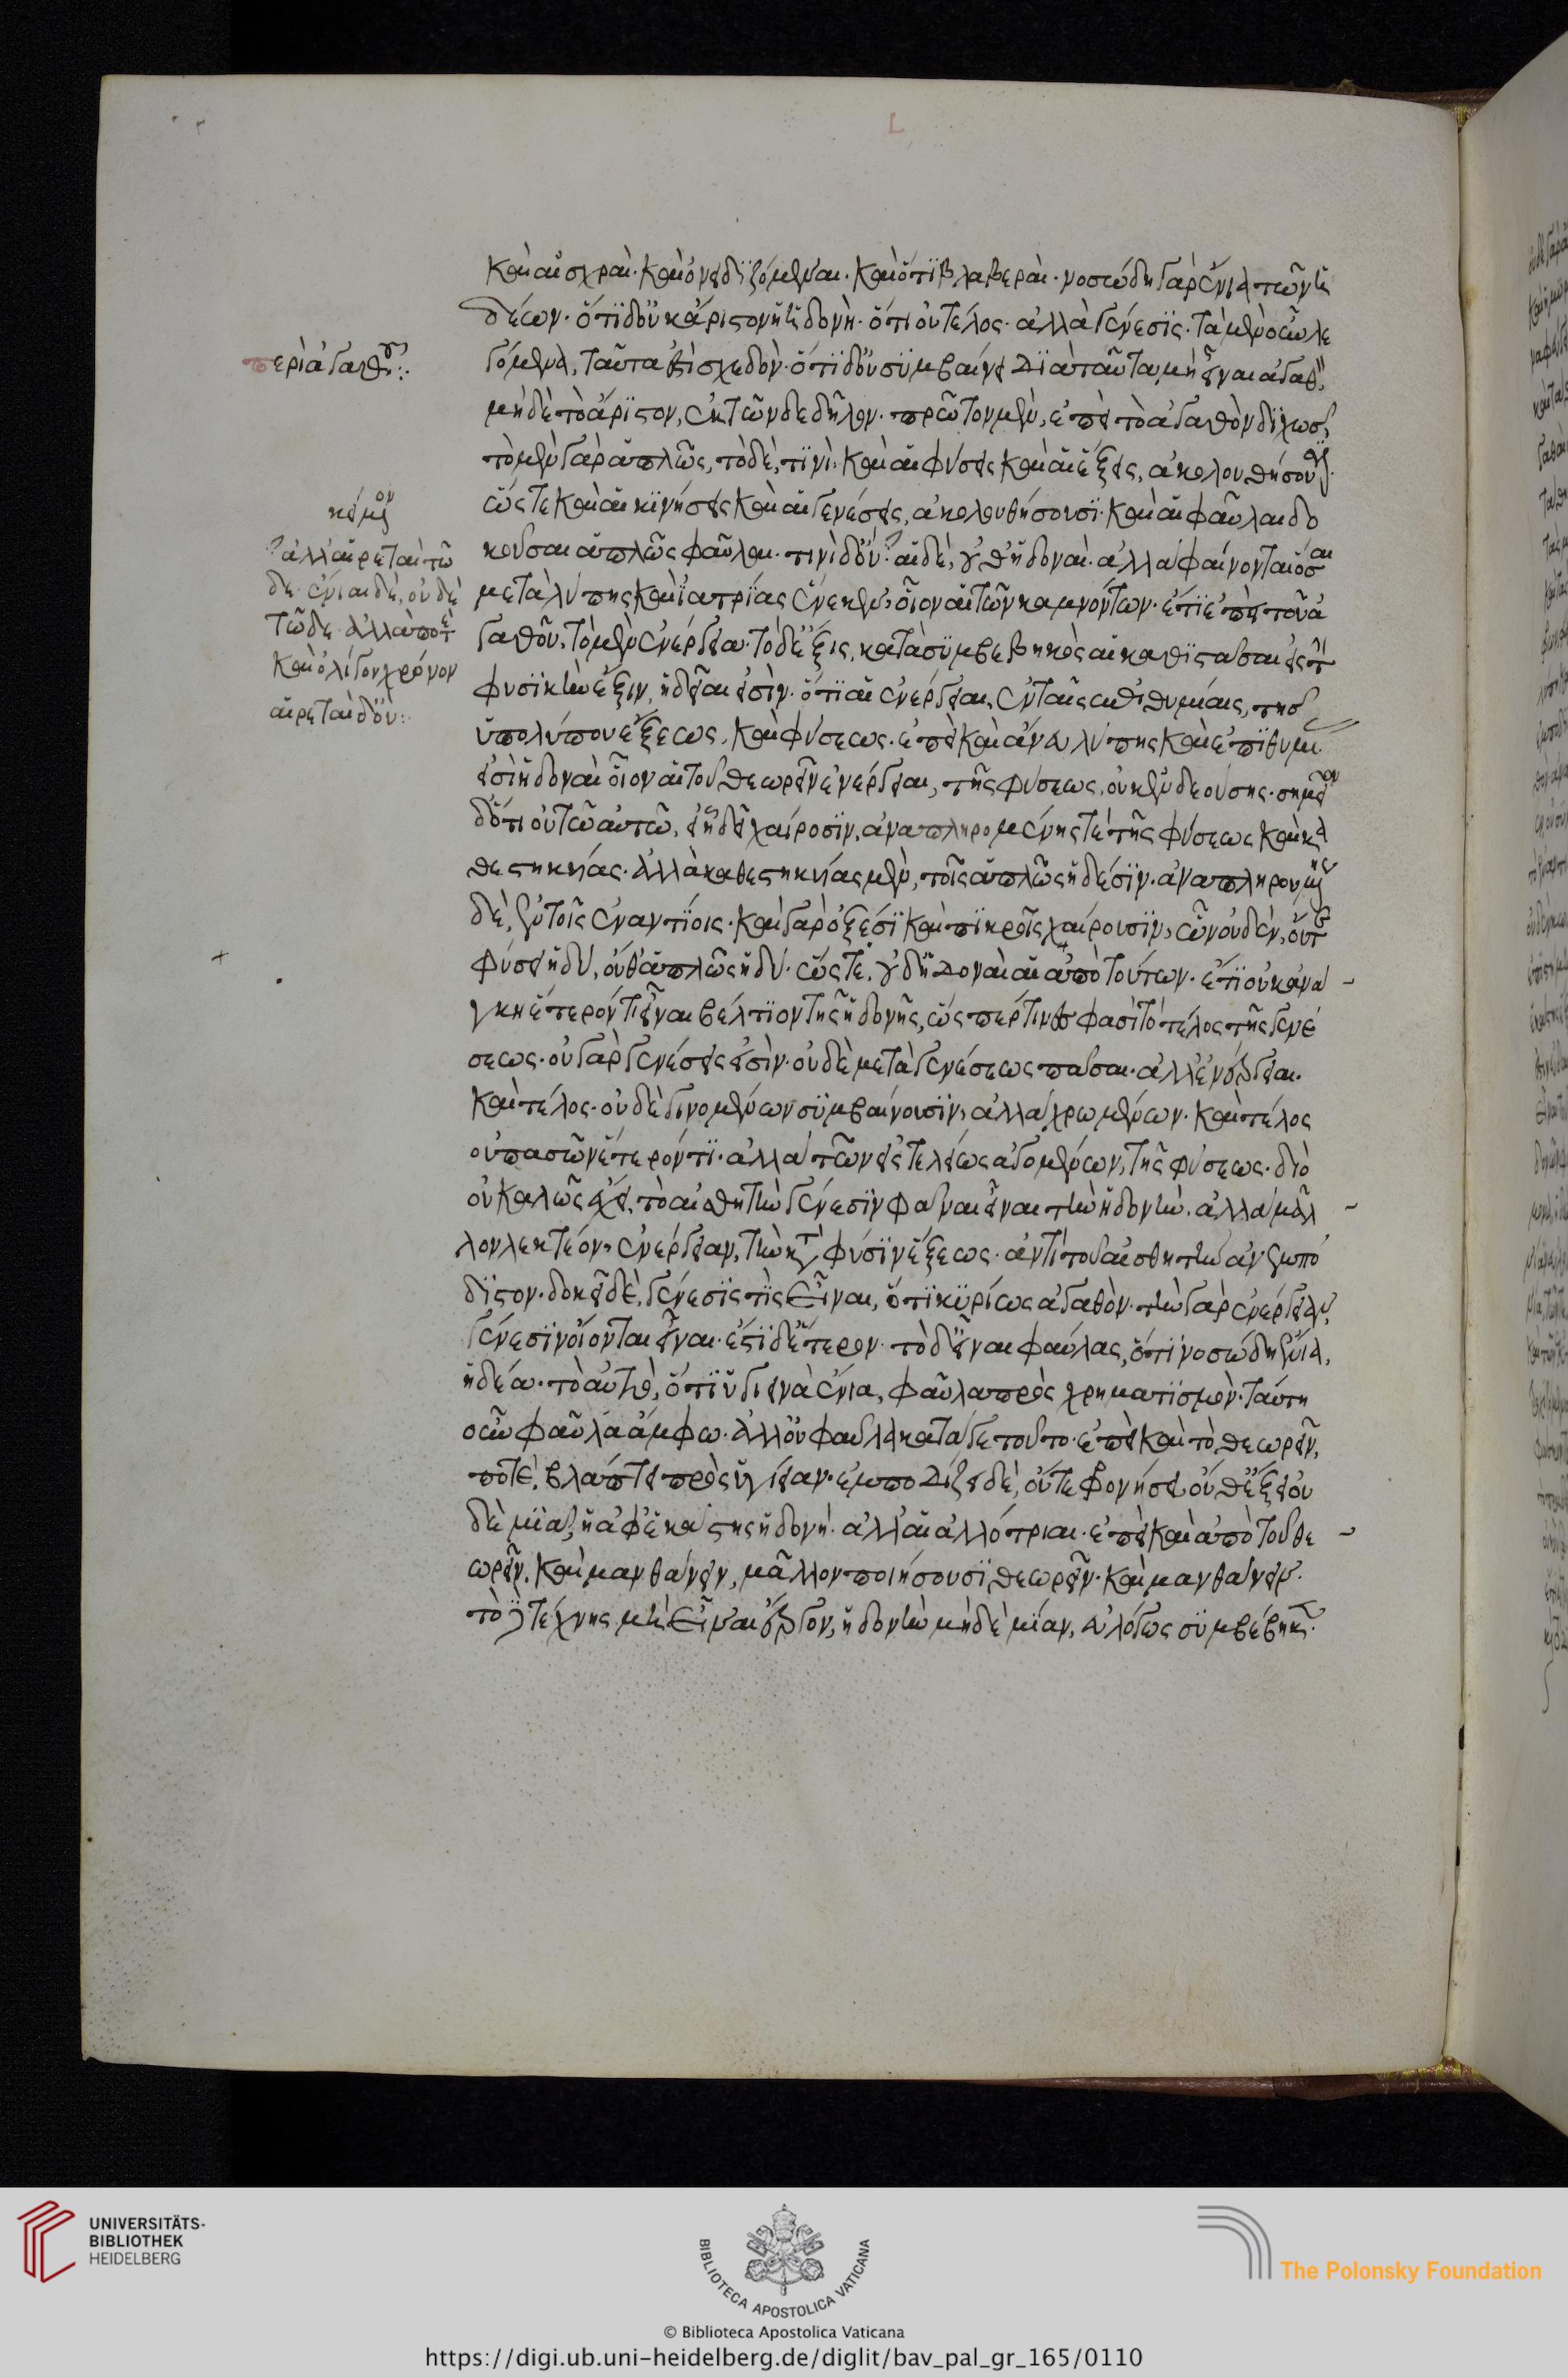 L
καὶ αἰσχραὶ· καὶ ὀνειδιζόμεναι· καὶ ὅτι βλαβεραὶ· νοσώδη γὰρ ἔνια τῶν ἡ
δέων· ὅτι δ' οὐκ ἄριστον ἡ ἡδονὴ· ὅτι οὐ τέλος· ἀλλὰ γένεσις. τὰ μὲν οὖν λε
περὶ ἀγαθοῦ:
γόμενα, ταῦτα ἐστὶ σχεδὸν· ὅτι δ' οὐ συμβαίνει διὰ ταῦτα μὴ εἶναι ἀγαθὸν,
μὴ δὲ τὸ ἄριστον, ἐκ τῶνδε δῆλον. πρῶτον μὲν, ἐπεὶ τὸ ἀγαθὸν διχῶς,
τὸ μὲν γὰρ ἁπλῶς, τὸ δὲ, τινὶ· καὶ αἱ φύσεις καὶ αἱ ἕξεις, ἀκολουθήσουσι.
κείμενον
ὥστε καὶ αἱ κινήσεις καὶ αἱ γενέσεις, ἀκολουθήσουσι. καὶ αἱ φαῦλαι δο
ἀλλ' αἱρεταὶ τῶ
κοῦσαι ἁπλῶς φαῦλαι· τινὶ δ' οὔ· αἱ δὲ, οὐδ' ἡδοναὶ· ἀλλὰ φαίνονται ὅσαι
δε· ἔνιαι δὲ, οὐδὲ
μετὰ λύπης καὶ ἰατρίας ἕνεκεν, οἷον αἱ τῶν καμνόντων· ἔτι ἐπεὶ τοῦ ἀ
τῶδε· ἀλλὰ ποτὲ
γαθοῦ, τὸ μὲν ἐνέργεια· τὸ δ' ἕξις, κατὰ συμβεβηκὸς αἱ καθιστᾶσαι εἰς τὴν
καὶ ὀλίγον χρόνον
φυσικὴν ἕξιν, ἡδεῖαι εἰσὶν· ὅτι αἱ ἐνέργειαι, ἐν ταῖς ἐπιθυμίαις, τῆς
αἱρεταὶ δ' οὔ:
ὑπολύπου ἕξεως, καὶ φύσεως· ἐπεὶ καὶ ἄνευ λύπης καὶ ἐπιθυμι
εἰσὶ ἡδοναὶ οἷον αἱ τοῦ θεωρεῖν ἐνέργειαι, τῆς φύσεως, οὐκ ἐνδεούσης. σημεῖον
δ' ὅτι οὐ τῶ αὐτῶ, ἡδεῖ χαίροσιν, ἀναπληρομένης τὲ τῆς φύσεως καὶ κα
θεστηκυίας· ἀλλὰ καθεστηκυίας μὲν, τοῖς ἁπλῶς ἡδέσιν· ἀναπληρουμένης
δὲ, ἐν τοῖς ἐναντίοις· καὶ γὰρ ὀξέσι καὶ πικροῖς χαίρουσιν, ὧν οὐδὲν, οὔτε
φύσει ἡδὺ, οὔθ' ἁπλῶς ἡδὺ· ὥστε, οὐδ' ἡδοναὶ αἱ ἀπὸ τούτων· ἔτι οὐκ ἀνά
γκη ἕτερόν τι εἶναι βέλτιον τῆς ἡδονῆς, ὥσπερ τινές φασὶ τὸ τέλος τῆς γενέ
σεως· οὐ γὰρ γενέσεις εἰσὶν· οὐδὲ μετὰ γενέσεως πᾶσαι· ἀλλ' ἐνέργειαι.
καὶ τέλος· οὐδὲ γινομένων συμβαίνουσιν, ἀλλὰ χρωμένων· καὶ τέλος
οὐ πασῶν ἕτερόν τι· ἀλλὰ τῶν εἰς τελείως ἀγομένων, τῆς φύσεως· διὸ
οὐ καλῶς ἔχει, τὸ αἰσθητὴν γένεσιν φάναι εἶναι τὴν ἡδονὴν. ἀλλὰ μᾶλ
λον λεκτέον, ἐνέργειαν, τὴν κατὰ φύσιν ἕξεως· ἀντὶ τοῦ αἰσθητὴν ἀνεμπό
διστον· δοκεῖ δὲ, γένεσις τὶς εἶναι, ὅτι κυρίως ἀγαθὸν· τὴν γὰρ ἐνέργειαν,
γένεσιν οἴονται εἶναι· ἔστι δ' ἕτερον· τὸ δ' εἶναι φαύλας, ὅτι νοσώδη ἔνια,
ἡδέα· τὸ αὐτὸ, ὅτι ὑγιεινὰ ἔνια, φαῦλα πρὸς χρηματισμὸν· ταύτη
οὖν φαῦλα ἄμφω· ἀλλ' οὐ φαῦλα κατά γε τοῦτο· ἐπεὶ καὶ τὸ, θεωρεῖν,
ποτὲ, βλάπτει πρὸς ὑγίειαν· ἐμποδίζει δὲ, οὔτε φρονήσει οὔθ' ἕξει οὐ
δὲ μιᾶ, ἡ ἀφ' ἑκάστης ἡδονὴ. ἀλλ' αἱ ἀλλότριαι· ἐπεὶ καὶ ἀπὸ τοῦ θε
ωρεῖν, καὶ μανθάνειν, μᾶλλον ποιήσουσι θεωρεῖν· καὶ μανθάνειν·
τὸ δὲ τέχνης μὴ εἶναι ἔργον, ἡδονὴν μηδὲ μίαν, εὐλόγως συμβέβηκε.
UNIVERSITÄTS-
BIBLIOTHEK
HEIDELBERG
BIBLIOTECA APOSTOLICA VATICANA
The Polonsky Foundation
© Biblioteca Apostolica Vaticana
https://digi.ub.uni-heidelberg.de/diglit/bav_pal_gr_165/0110